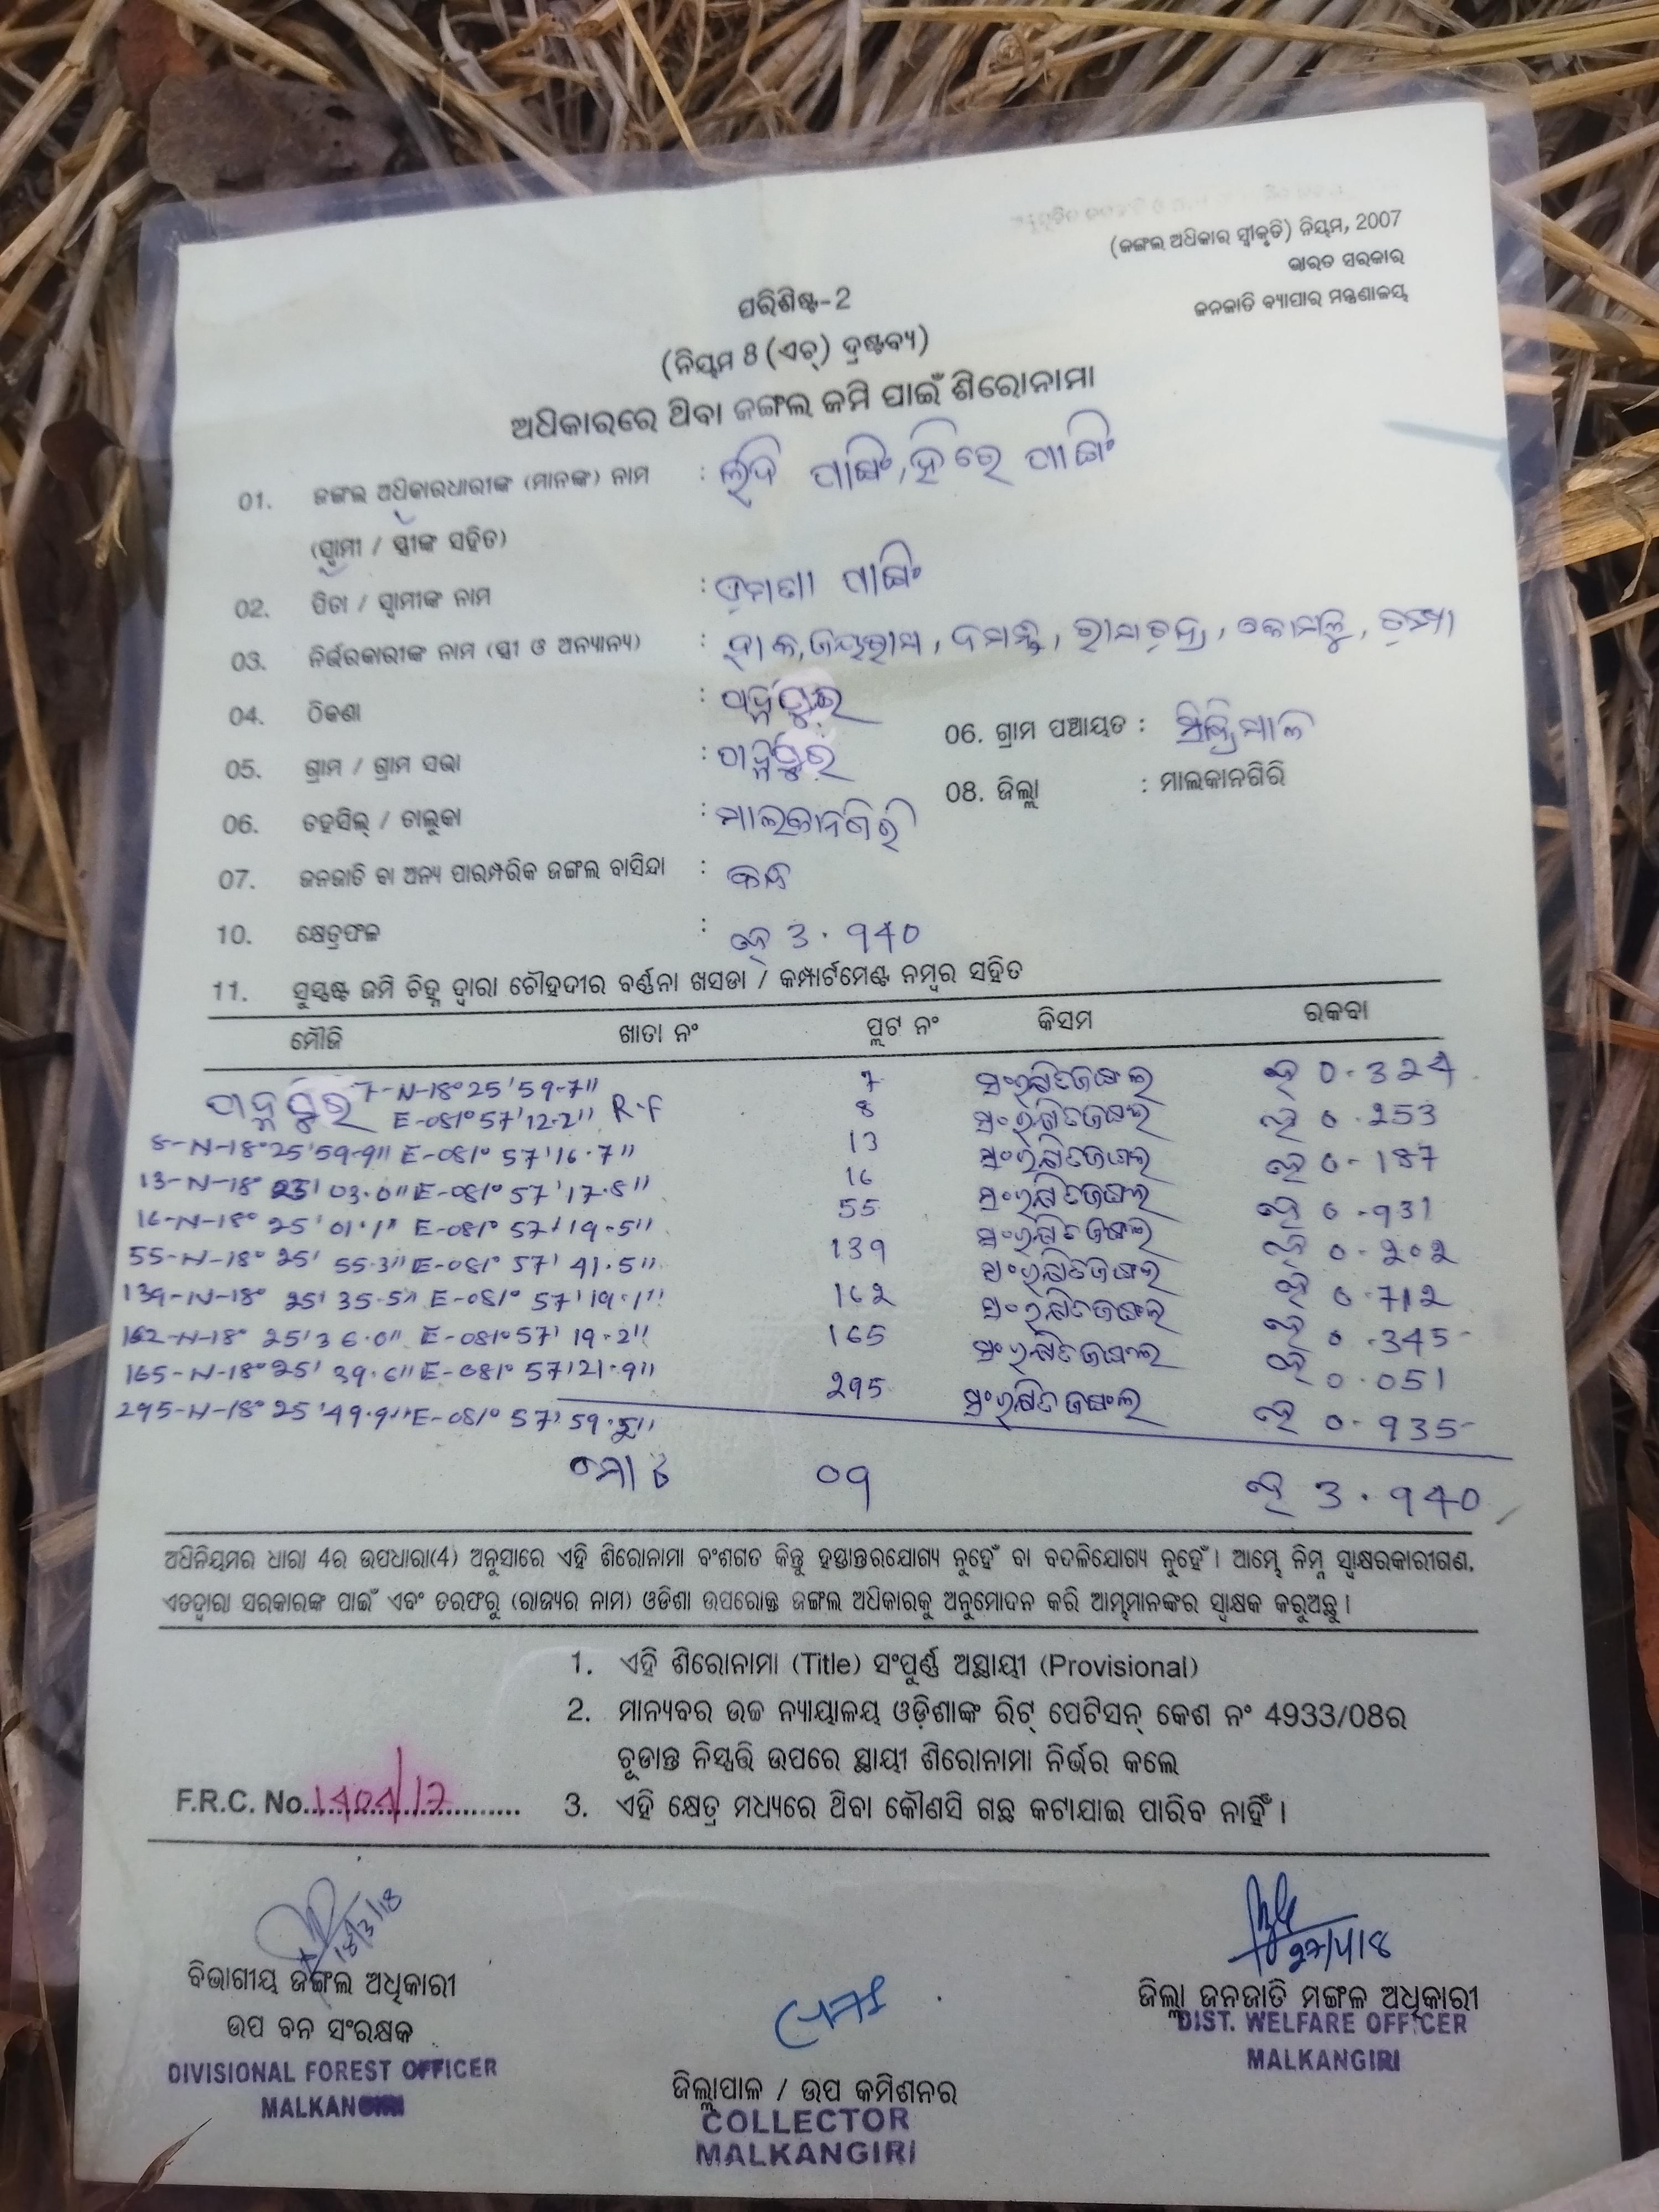 (ଜଙ୍ଗଲ ଅଧିକାର ସ୍ୱୀକୃତି) ନିୟମ, 2007
ଭାରତ ସରକାର
ଜନଜାତି ବ୍ୟାପାର ମନ୍ତ୍ରଣାଳୟ
ପରିଶିଷ୍ଟ-2
(ନିୟମ 8 (ଏଚ୍) ଦ୍ରଷ୍ଟବ୍ୟ)
ଅଧିକାରରେ ଥିବା ଜଙ୍ଗଲ ଜମି ପାଇଁ ଶିରୋନାମା
01. ଜଙ୍ଗଲ ଅଧିକାରଧାରୀଙ୍କ (ମାନଙ୍କ) ନାମ :
(ସ୍ୱାମୀ / ସ୍ତ୍ରୀଙ୍କ ସହିତ)
02. ପିତା / ସ୍ୱାମୀଙ୍କ ନାମ :
03. ନିର୍ଭରକାରୀଙ୍କ ନାମ (ସ୍ତ୍ରୀ ଓ ଅନ୍ୟାନ୍ୟ) :
04. ଠିକଣା :
05. ଗ୍ରାମ / ଗ୍ରାମ ସଭା : 06. ଗ୍ରାମ ପଞ୍ଚାୟତ :
06. ତହସିଲ୍ / ତାଲୁକା : ମାଲକାନଗିରି 08. ଜିଲ୍ଲା : ମାଲକାନଗିରି
07. ଜନଜାତି ବା ଅନ୍ୟ ପାରମ୍ପରିକ ଜଙ୍ଗଲ ବାସିନ୍ଦା :
10. କ୍ଷେତ୍ରଫଳ : ହେ 3.940
11. ସୁସ୍ପଷ୍ଟ ଜମି ଚିହ୍ନ ଦ୍ୱାରା ଚୌହଦୀର ବର୍ଣ୍ଣନା ଖସଡା / କମ୍ପାର୍ଟମେଣ୍ଟ ନମ୍ବର ସହିତ
ମୌଜି ଖାତା ନଂ ପ୍ଲଟ ନଂ କିସମ ରକବା
7-N-18°25'59.7" 7 ସଂରକ୍ଷିତ ଜଙ୍ଗଲ ହେ 0.324
E-081°57'12.2" R.F 8 ସଂରକ୍ଷିତ ଜଙ୍ଗଲ ହେ 0.253
8-N-18°25'59.9" E-081°57'16.7" 13 ସଂରକ୍ଷିତ ଜଙ୍ଗଲ ହେ 0.187
13-N-18° 03.0" E-081°57'17.8" 16 ସଂରକ୍ଷିତ ଜଙ୍ଗଲ ହେ 0.931
16-N-18°25'01.1" E-081°57'19.5" 55 ସଂରକ୍ଷିତ ଜଙ୍ଗଲ ହେ 0.202
55-N-18°25'55.3" E-081°57'41.5" 139 ସଂରକ୍ଷିତ ଜଙ୍ଗଲ ହେ 0.712
139-N-18°25'35.5" E-081°57'19.1" 162 ସଂରକ୍ଷିତ ଜଙ୍ଗଲ ହେ 0.345
162-N-18°25'36.0" E-081°57'19.2" 165 ସଂରକ୍ଷିତ ଜଙ୍ଗଲ ହେ 0.051
165-N-18°25'39.6" E-081°57'21.9" 295 ସଂରକ୍ଷିତ ଜଙ୍ଗଲ ହେ 0.935
295-N-18°25'49.9" E-081°57'
ମୋଟ 09 ହେ 3.940
ଅଧିନିୟମର ଧାରା 4ର ଉପଧାରା(4) ଅନୁସାରେ ଏହି ଶିରୋନାମା ବଂଶଗତ କିନ୍ତୁ ହସ୍ତାନ୍ତରଯୋଗ୍ୟ ନୁହେଁ ବା ବଦଳିଯୋଗ୍ୟ ନୁହେଁ। ଆମ୍ଭେ ନିମ୍ନ ସ୍ୱାକ୍ଷରକାରୀଗଣ,
ଏତଦ୍ୱାରା ସରକାରଙ୍କ ପାଇଁ ଏବଂ ତରଫରୁ (ରାଜ୍ୟର ନାମ) ଓଡିଶା ଉପରୋକ୍ତ ଜଙ୍ଗଲ ଅଧିକାରକୁ ଅନୁମୋଦନ କରି ଆମ୍ଭମାନଙ୍କର ସ୍ୱାକ୍ଷକ କରୁଅଛୁ।
1. ଏହି ଶିରୋନାମା (Title) ସଂପୁର୍ଣ୍ଣ ଅସ୍ଥାୟୀ (Provisional)
2. ମାନ୍ୟବର ଉଚ୍ଚ ନ୍ୟାୟାଳୟ ଓଡ଼ିଶାଙ୍କ ରିଟ୍ ପେଟିସନ୍ କେଶ ନଂ 4933/08ର
ଚୂଡାନ୍ତ ନିସ୍ପତ୍ତି ଉପରେ ସ୍ଥାୟୀ ଶିରୋନାମା ନିର୍ଭର କଲେ
F.R.C. No. 3. ଏହି କ୍ଷେତ୍ର ମଧ୍ୟରେ ଥିବା କୌଣସି ଗଛ କଟାଯାଇ ପାରିବ ନାହିଁ।
18/3/18
ବିଭାଗୀୟ ଜଙ୍ଗଲ ଅଧିକାରୀ
ଉପ ବନ ସଂରକ୍ଷକ
DIVISIONAL FOREST OFFICER
MALKANGIRI
ଜିଲ୍ଲାପାଳ / ଉପ କମିଶନର
COLLECTOR
MALKANGIRI
ଜିଲ୍ଲା ଜନଜାତି ମଙ୍ଗଳ ଅଧିକାରୀ
DIST. WELFARE OFFICER
MALKANGIRI